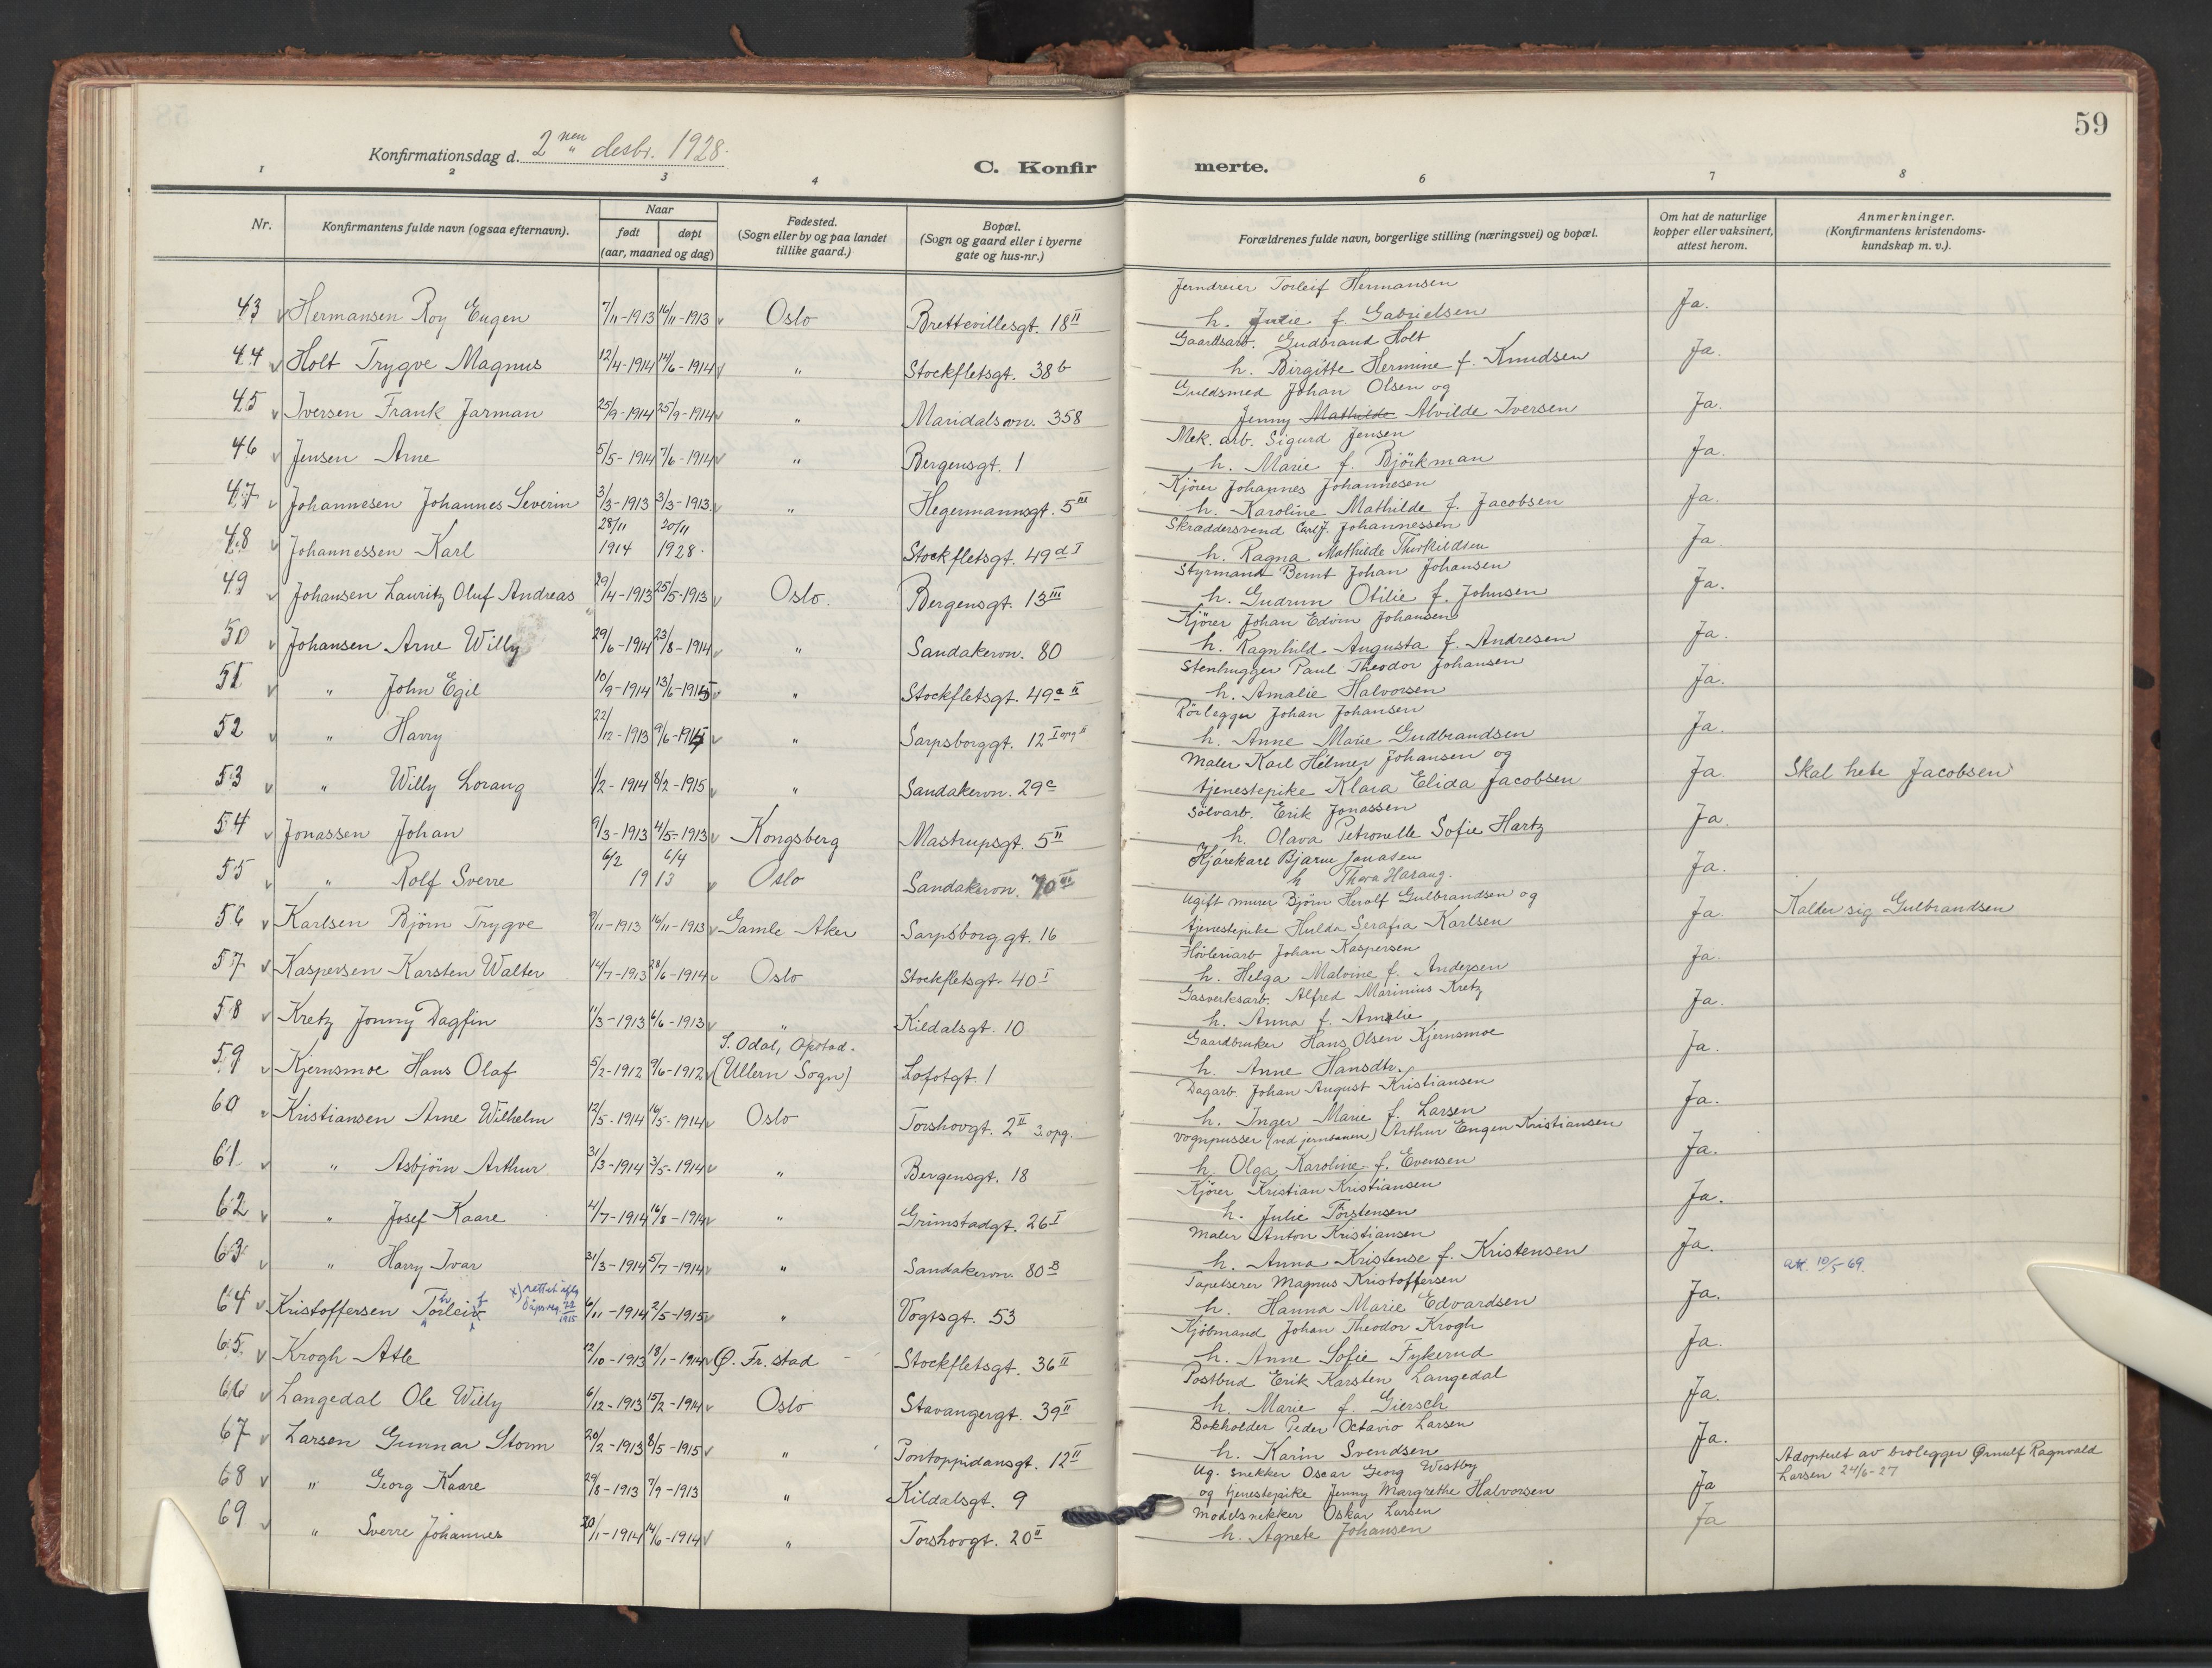 59
Konfirmationsdag d. 2nen desbr. 1928.
C. Konfirmerte.
1 2 3 4 6 7 8
Nr. | Konfirmantens fulde navn (ogsaa efternavn). | Naar født døpt (aar, maaned og dag) | Fødested. (Sogn eller by og paa landet tillike gaard.) | Bopæl. (Sogn og gaard eller i byerne gate og hus-nr.) | Forældrenes fulde navn, borgerlige stilling (næringsvei) og bopæl. | Om hat de naturlige kopper eller vaksinert, attest herom. | Anmerkninger. (Konfirmantens kristendoms-kundskap m. v.).
43 Hermansen Roy Eugen 7/11-1913 16/11-1913 Oslo Brettevillesgt. 18 II Jerndreier Torleif Hermansen
h. Julie f. Gabrielsen Ja.
44 Holt Trygve Magnus 12/4-1914 14/6-1914 " Stockfletsgt. 38b Gaardsarb. Gudbrand Holt
h. Birgitte Hermine f. Knudsen Ja.
45 Iversen Frank Jarman 25/9-1914 25/9-1914 " Maridalsvn. 358 Guldsmed Johan Olsen og
Jenny Mathilde Alvilde Iversen Ja.
46 Jensen Arne 5/5-1914 7/6-1914 " Bergensgt. 1 Mek. arb. Sigurd Jensen
h. Marie f. Björkman Ja.
47 Johannesen Johannes Severin 3/3-1913 3/3-1913 " Hegermannsgt. 5 III Kjører Johannes Johannesen
h. Karoline Mathilde f. Jacobsen Ja.
48 Johannessen Karl 28/11 1914 20/11 1928. Stockfletsgt. 49d I Skræddersvend Carl J. Johannessen
h. Ragna Mathilde Thorkildsen Ja.
49 Johansen Lauritz Oluf Andreas 29/4-1913 25/5-1913 Oslo. Bergensgt. 13 III Styrmand Bernt Johan Johansen
h. Gudrun Otilie f. Johnsen Ja.
50 Johansen Arne Willy 29/6-1914 23/8-1914 " Sandakervn. 80 Kjører Johan Edvin Johansen
h. Ragnhild Augusta f. Andresen Ja.
51 " John Egil 10/9-1914 13/6-1915 " Stockfletsgt. 49a II Stenhugger Paul Theodor Johansen
h. Amalie Halvorsen Ja.
52 " Harry 22/12-1913 9/6-1914 " Sarpsborggt. 12 I opg II Rörlegger Johan Johansen
h. Anne Marie Gudbrandsen Ja.
53 " Willy Lorang 1/2-1914 8/2-1915 " Sandakervn. 29c Maler Karl Hilmer Johansen og
tjenestepike Klara Elida Jacobsen Ja. Skal hete Jacobsen
54 Jonassen Johan 9/3-1913 4/5-1913 Kongsberg Mastrupsgt. 5 II Sölvarb. Erik Jonassen
h. Olava Petronelle Sofie Hartz Ja.
55 " Rolf Sverre 6/2 6/4 1913 Oslo Sandakervn. 70 III Kjørekarl Bjarne Jonasen
h Thora Haraug. Ja.
56 Karlsen Bjørn Trygve 9/11-1913 16/11-1913 Gamle Aker Sarpsborggt. 16 Ugift murer Bjørn Herolf Gulbrandsen og
tjenestepike Hulda Serafia Karlsen Ja. Kalder sig Gulbrandsen
57 Kaspersen Karsten Walter 14/7-1913 28/6-1914 Oslo Stockfletsgt. 40 I Hövleriarb Johan Kaspersen
h. Helga Malvine f. Andersen Ja.
58 Kretz Jonny Dagfin 11/3-1913 6/6-1913 " Kildalsgt. 10 Gasverksarb. Alfred Marinius Kretz
h. Anna f. Amelie Ja.
59 Kjernsmoe Hans Olaf 5/2-1912 9/6-1912 S. Odal, Opstad. (Ullern Sogn) Lofotgt. 1 Gaardbruker Hans Olsen Kjernsmoe
h. Anne Hansdtr. Ja.
60 Kristiansen Arne Wilhelm 12/5-1914 16/5-1914 Oslo Torshovgt. 2 II 3. opg. Dagarb. Johan August Kristiansen
h. Inger Marie f. Larsen Ja.
61 " Asbjörn Arthur 31/3-1914 3/5-1914 " Bergensgt. 18 Vognpusser (ved jernbanen) Arthur Eugen Kristiansen
h. Olga Karoline f. Evensen Ja.
62 " Josef Kaare 4/7-1914 16/8-1914 " Grimstadgt. 26 I Kjører Kristian Kristiansen
h. Julie Torstensen Ja.
63 " Harry Ivar 31/3-1914 5/7-1914 " Sandakervn. 80B Maler Anton Kristiansen
h. Anna Kristense f. Kristensen Ja. att. 10/5-69.
64 Kristoffersen Torleiv x) rettet iflg. dåpsreg. 1915 6/11-1914 2/5-1915 " Vogtsgt. 53 Tapetserer Magnus Kristoffersen
h. Hanna Marie Edvardsen Ja.
65 Krogh Atle 12/10-1913 18/1-1914 Ø. Fr. stad Stockfletsgt. 36 II Kjöbmand Johan Theodor Krogh
h. Anne Sofie Fykerud Ja.
66 Langedal Ole Willy 6/12-1913 15/2-1914 Oslo Stavangergt. 39 II Postbud Erik Karsten Langedal
h. Marie f. Giersch Ja.
67 Larsen Gunnar Storm 20/2-1913 8/5-1915 " Pontoppidansgt. 12 II Bokholder Peder Octavio Larsen
h. Karin Svendsen Ja.
68 " Georg Kaare 29/8-1913 7/9-1913 " Kildalsgt. 9 Ug. snekker Oscar Georg Westby
og tjenestepike Jenny Margrethe Halvorsen Ja Adoptert av brolegger Ørnulf Ragnvald
Larsen 24/6-27
69 " Sverre Johannes 20/1-1914 14/6-1914 " Torshovgt. 20 II Modelsnekker Oskar Larsen
h. Agnete Johansen Ja